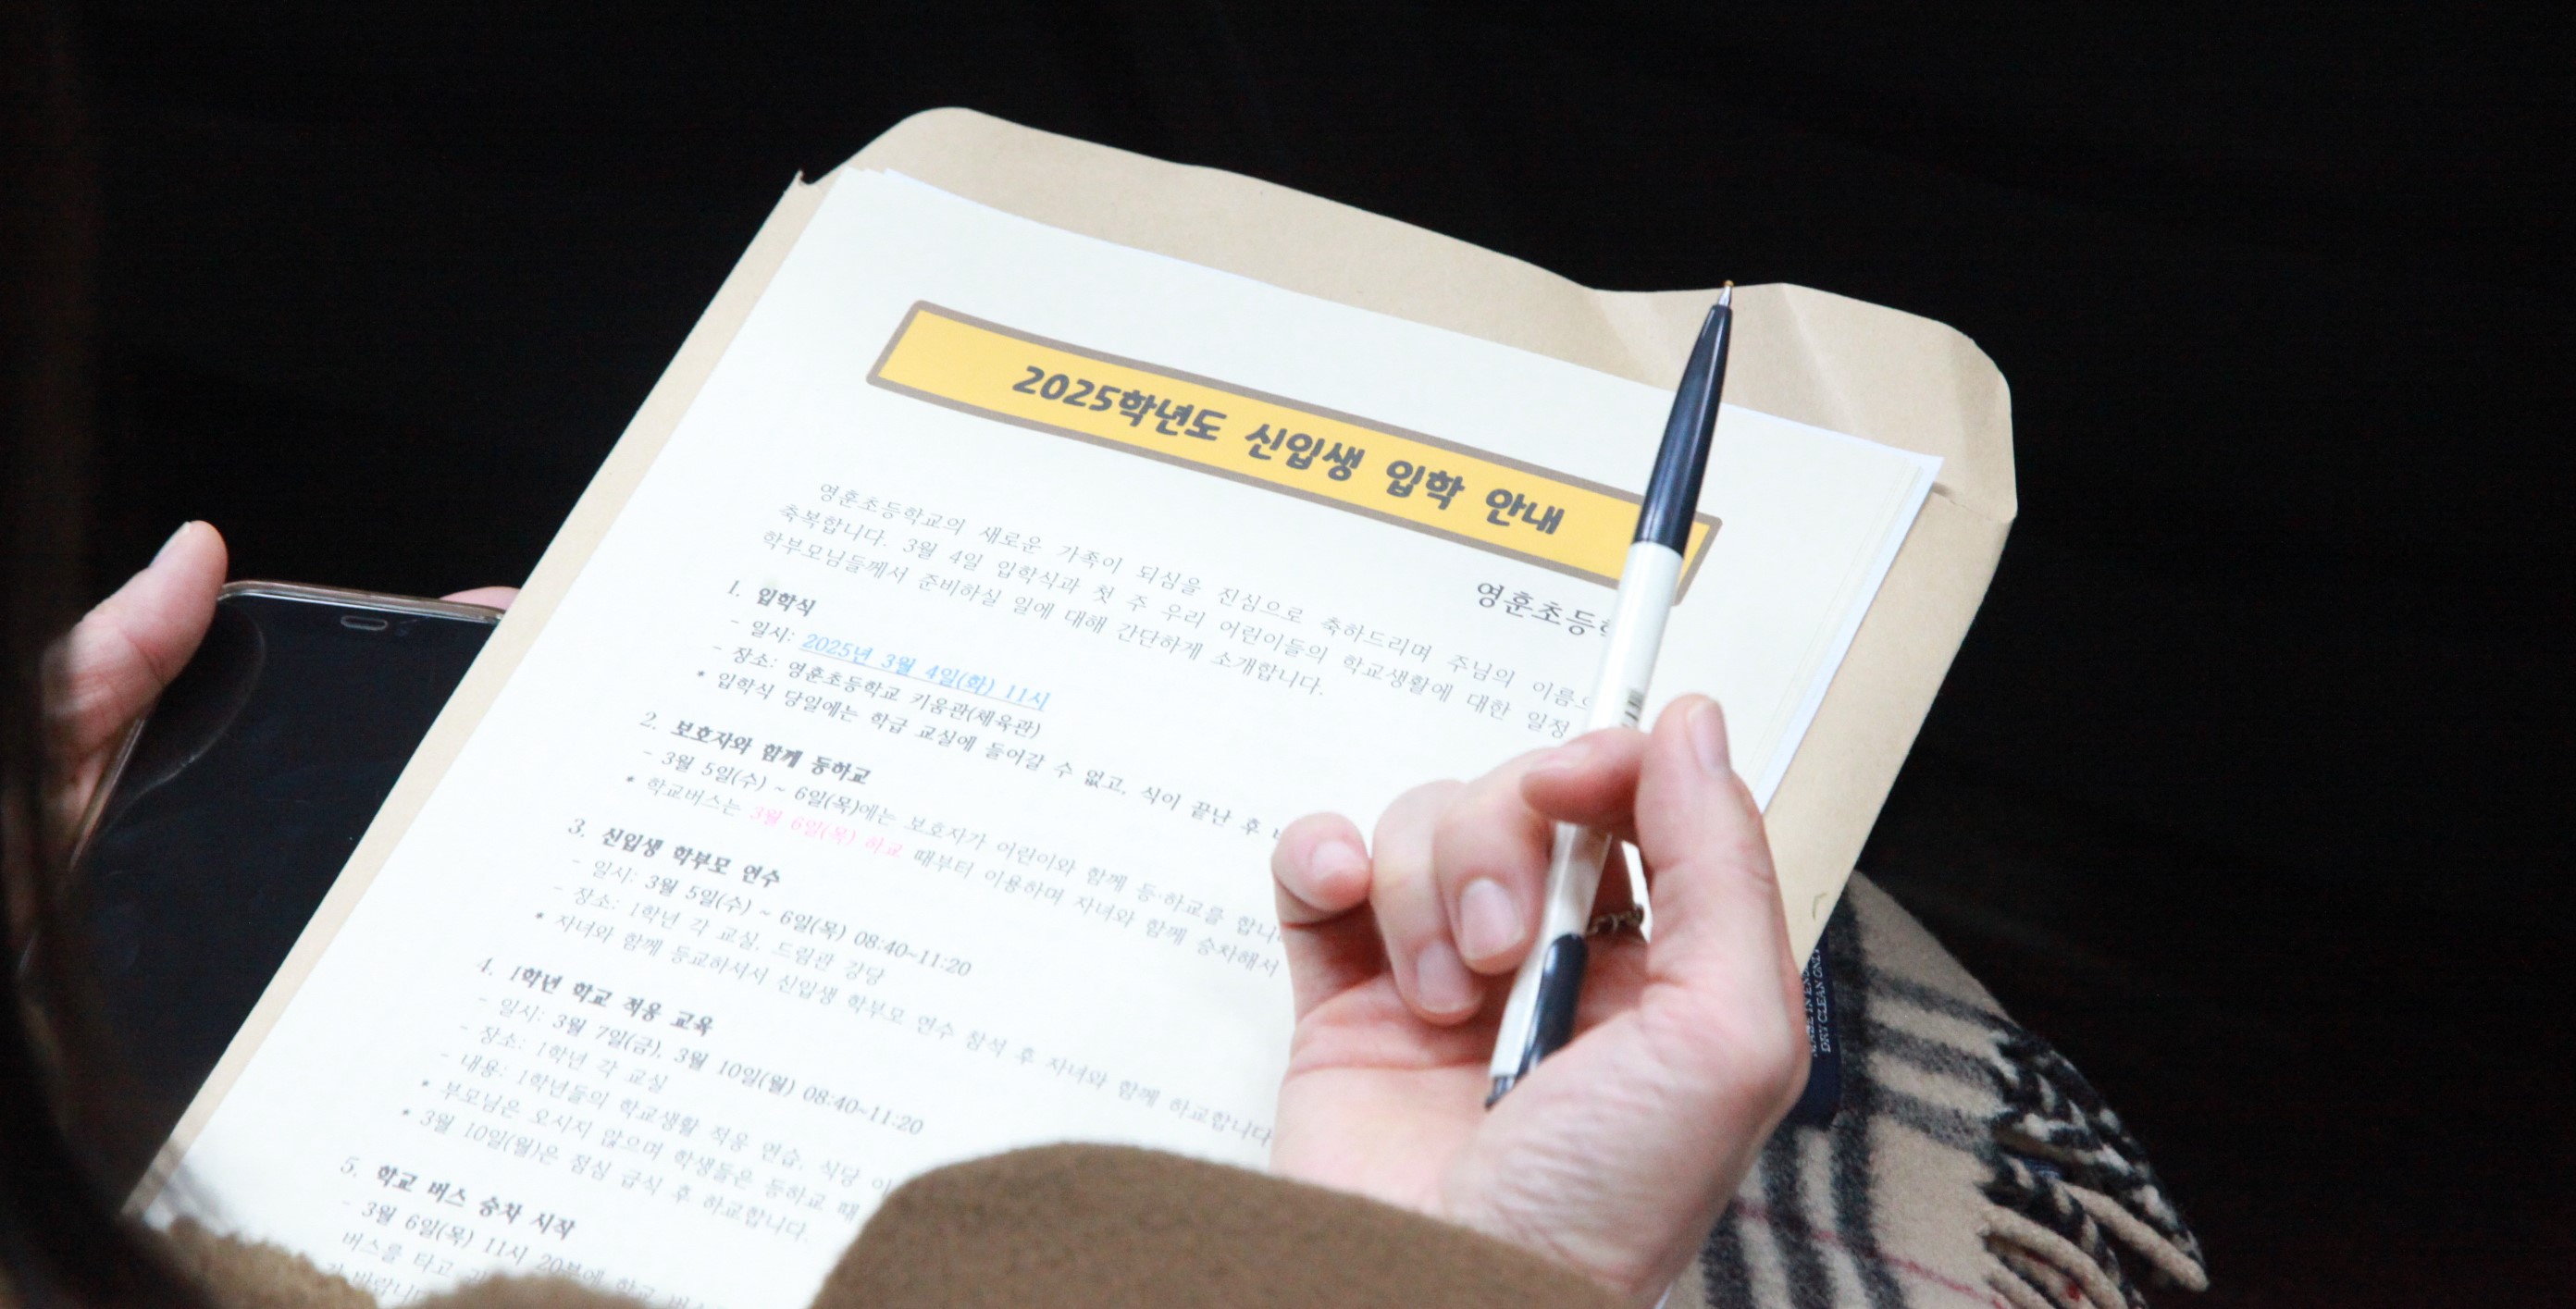 2025학년도 신입생 입학 안내
영훈초등
영훈초등학교의 새로운 가족이 되심을 진심으로 축하드리며 주님의
축복합니다. 3월 4일 입학식과 첫 주 우리 어린이들의 학교생활에 대한 일정
학부모님들께서 준비하실 일에 대해 간단하게 소개합니다.
1. 입학식
- 일시: 2025년 3월 4일(화) 11시
- 장소: 영훈초등학교 키움관(체육관)
* 입학식 당일에는 학급 교실에 들어갈 수 없고, 식이 끝난 후
2. 보호자와 함께 등하교
- 3월 5일(수) ~ 6일(목)에는 보호자가 어린이와 함께 등·하교를
* 학교버스는 3월 6일(목) 하교 때부터 이용하며 자녀와 함께 승차해서
3. 신입생 학부모 연수
- 일시: 3월 5일(수) ~ 6일(목) 08:40~11:20
- 장소: 1학년 각 교실, 드림관 강당
* 자녀와 함께 등교하셔서 신입생 학부모 연수 참석 후 자녀와 함께 하교합니다
4. 1학년 학교 적응 교육
- 일시: 3월 7일(금), 3월 10일(월) 08:40~11:20
- 장소: 1학년 각 교실
- 내용: 1학년들의 학교생활 적응 연습, 식당
* 부모님은 오시지 않으며 학생들은 등하교 때
* 3월 10일(월)은 점심 급식 후 하교합니다.
5. 학교 버스 승차 시작
- 3월 6일(목) 11시 20분에 학교
버스를 타고
DRY CLEAN ONLY